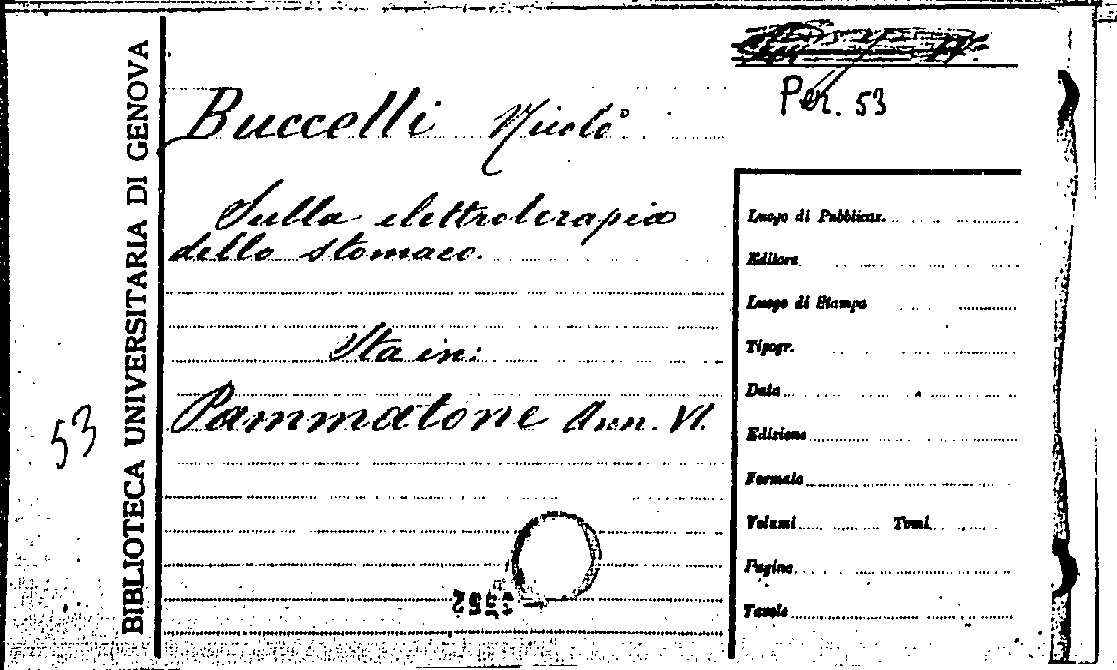 BIBLIOTECA UNIVERSITARIA DI GENOVA
53
Per. 53
Buccelli Nicolò
Sulla elettroterapia
dello stomaco.
Sta in:
Pammatone Ann. VI.
Luogo di Pubblicaz.
Editore
Luogo di Stampa
Tipogr.
Data
Edizione
Formato
Volumi Tomi
Pagine
Tavole